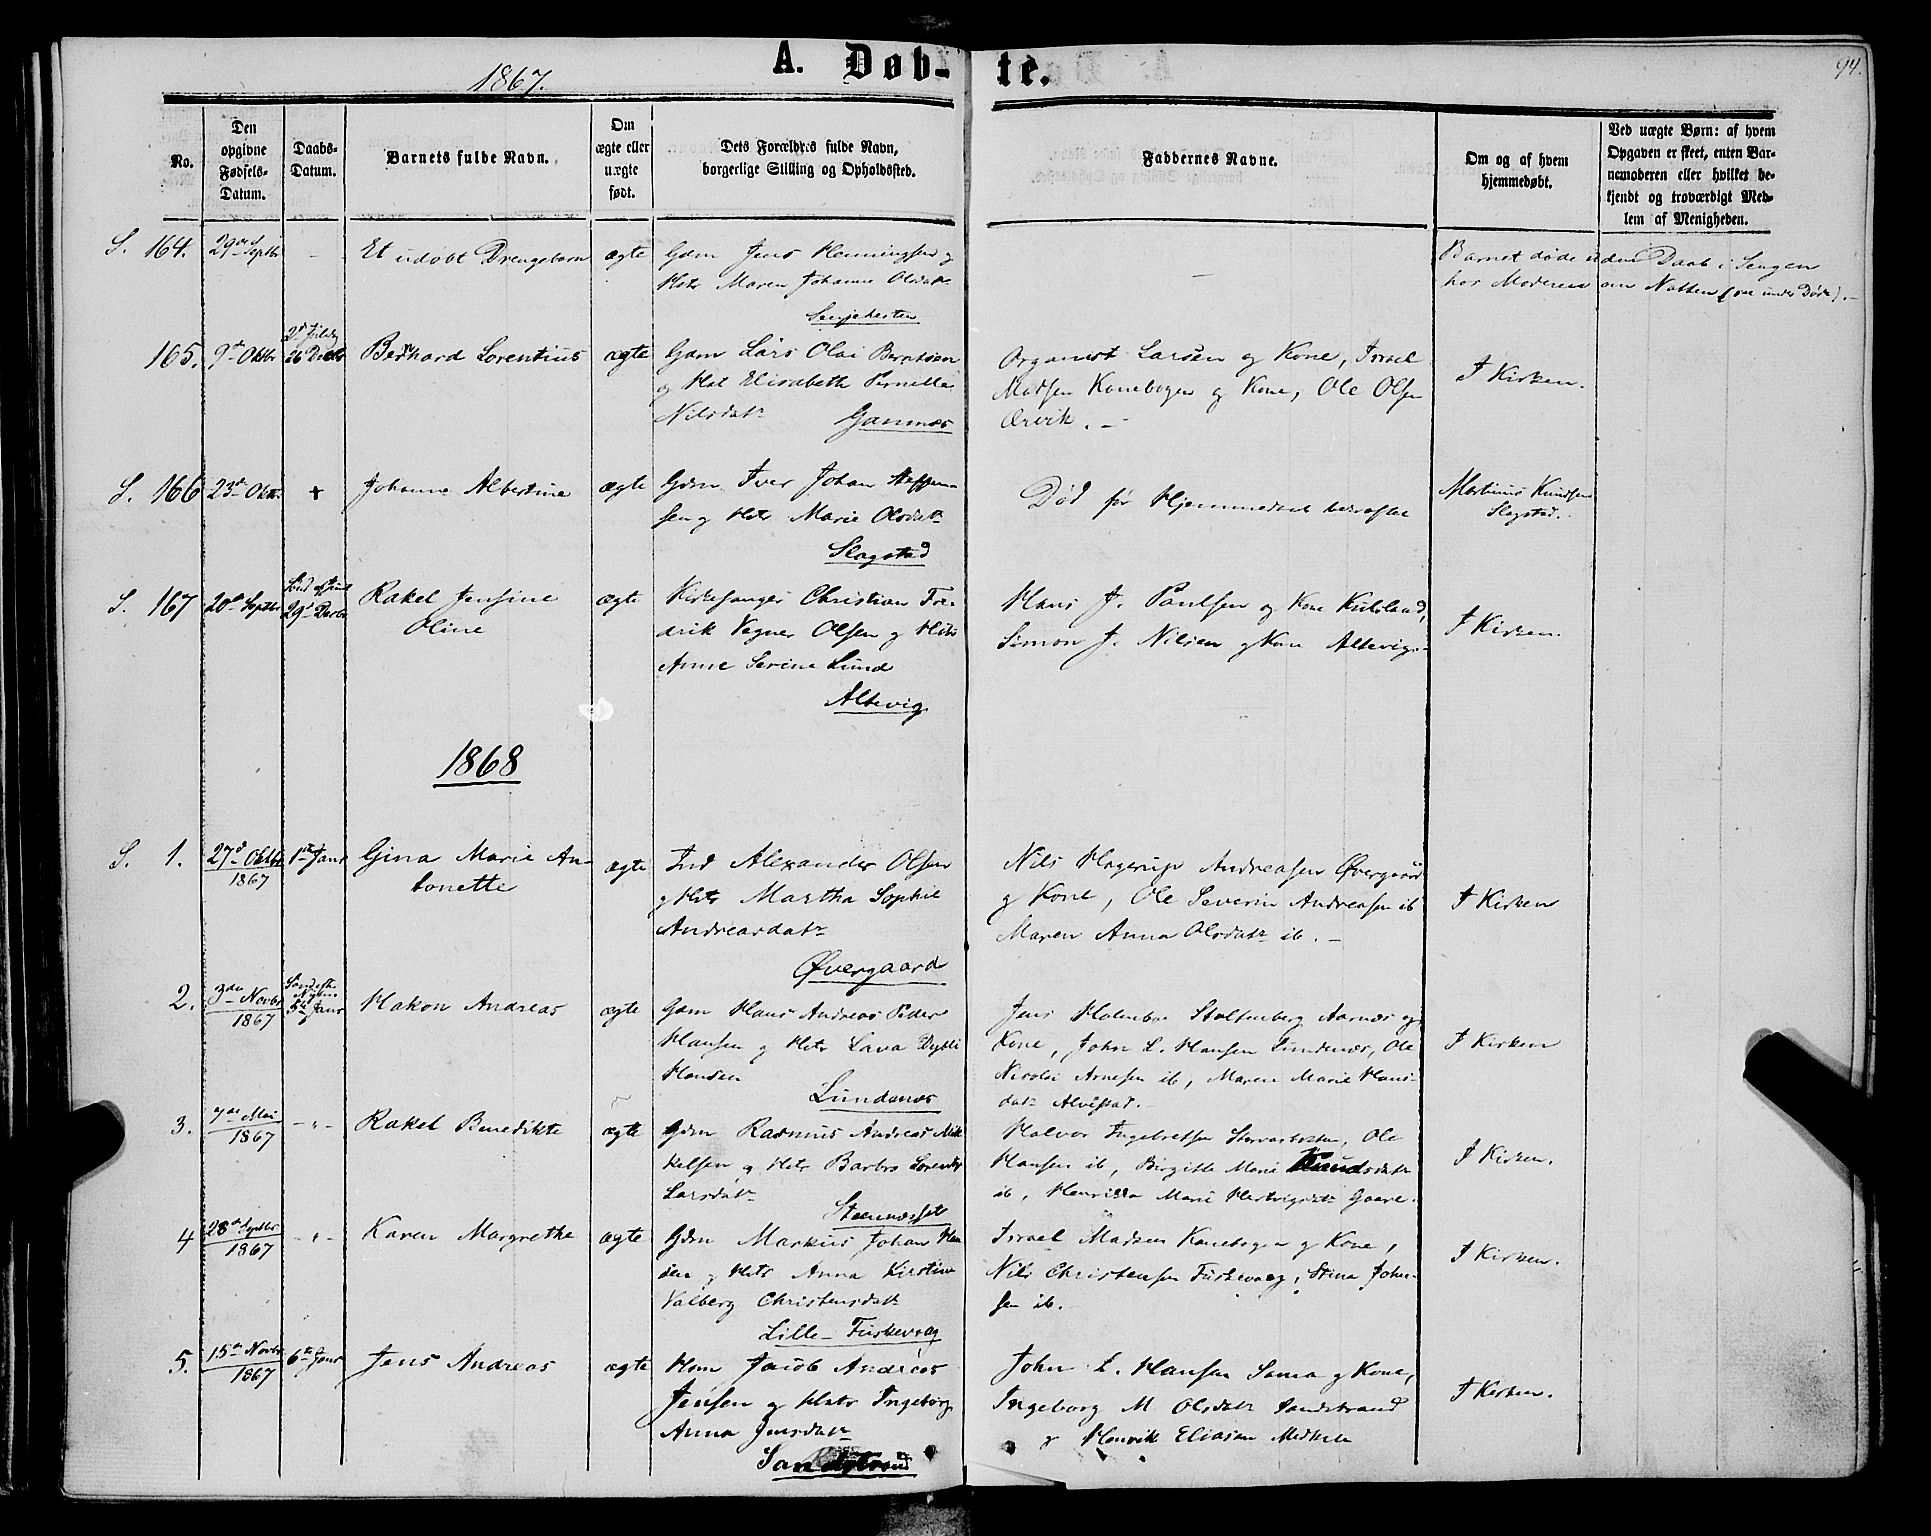 94.
1867.
A. Døb-
te.
No.
Den
opgivne
Fødsels-
Datum.
Daabs-
Datum.
Barnets fulde Navn.
Om
ægte eller
uægte
født.
Dets Forældres fulde Navn,
borgerlige Stilling og Opholdssted.
Faddernes Navne.
Om og af hvem
hjemmedøbt.
Ved uægte Børn: af hvem
Opgaven er skeet, enten Bar-
nemoderen eller hvilket be-
kjendt og troværdigt Med-
lem af Menigheden.
S. 164.
29de Septbr
-
Et udøbt Drengebarn
ægte
Gdm Jens Henningsen og
Hstr Maren Johanne Olsdatr
-
Barnet døde uden Daab i Sengen
hos Moderen om Natten (see under Døde). -
165.
9de Oktbr
2d Juledg
26 Decbr
Bernhard Lorentius
ægte
Gdm Lars Olai Berntsen
og Hst Elisabeth Pernella
Nilsdatr
Gannæs
Organist Larsen og Kone, Israel
Madsen Kanebogen og Kone, Ole Olsen
Ervik. -
I Kirken.
S. 166
23de Oktbr
+
Johanna Albertine
ægte
Gdm Iver Johan Steffen-
sen og Hstr Marie Olsdatr
Slagstad
Død før Hjemmedaab bekræftet
Martinus Knudsen
Slagstad.
S. 167
20de Septbr
29de Decbr
Rakel Jensine
Oline
ægte
Kirkesanger Christian Fre-
drik Vegner Olsen og Hstr
Anne Serine Lund
Altevig
Hans J. Paulsen og Kone
Simon J. Nilsen og Kone Altevig. -
I Kirken.
1868
S. 1.
27d Oktbr
1867
1ste Janr
Gina Marie An-
tonette
ægte
Ind Alexander Olsen
og Hstr Martha Sophie
Andreasdatr
Øvergaard
Nils Hagerup Andreassen Øvergaard
og Kone, Ole Severin Andreasen ib
Maren Anna Olsdatr ib. -
I Kirken
2.
3die Novbr
1867
5te Janr
Hakon Andreas
ægte
Gdm Hans Andreas Peder
Hansen og Hstr Lava
Hansen
Lundenæs
Jens Holmboe Stoltenberg Aarnæs og
Kone, John L. Hansen Lundenæs, Ole
Nicolai Arnesen ib, Maren Marie Hans-
datr Alvestad. -
I Kirken
3.
7de Mai
1867
-"-
Rakel Benedikte
ægte
Gdm Rasmus Andreas Mik-
kelsen og Hstr Barbro
Larsdatr
Halvor Ingebretsen, Ole
Hansen ib, Birgitte Marie Knudsdatr
ib, Marie Hertvigsdatr Gaare.
I Kirken.
4
28de Septbr
1867
-"-
Karen Margrethe
ægte
Gdm Markus Johan Han-
sen og Hstr Anna Kirstine
Valberg Christensdatr
Lille-Fuskevaag
Israel Madsen Kanebogen og Kone,
Nils Christensen Fuskevaag, Stina John-
sen ib.
I Kirken.
5.
15de Novbr
1867
6te Janr
Jens Andreas
ægte
Hsm Jacob Andreas
Jensen og Hstr Ingeborg
Anna Jensdatr
Sandstrand
John L. Hansen Sama og Kone,
Ingeborg M Olsdatr Sandstrand
og Henrik Eliasen
I Kirken.